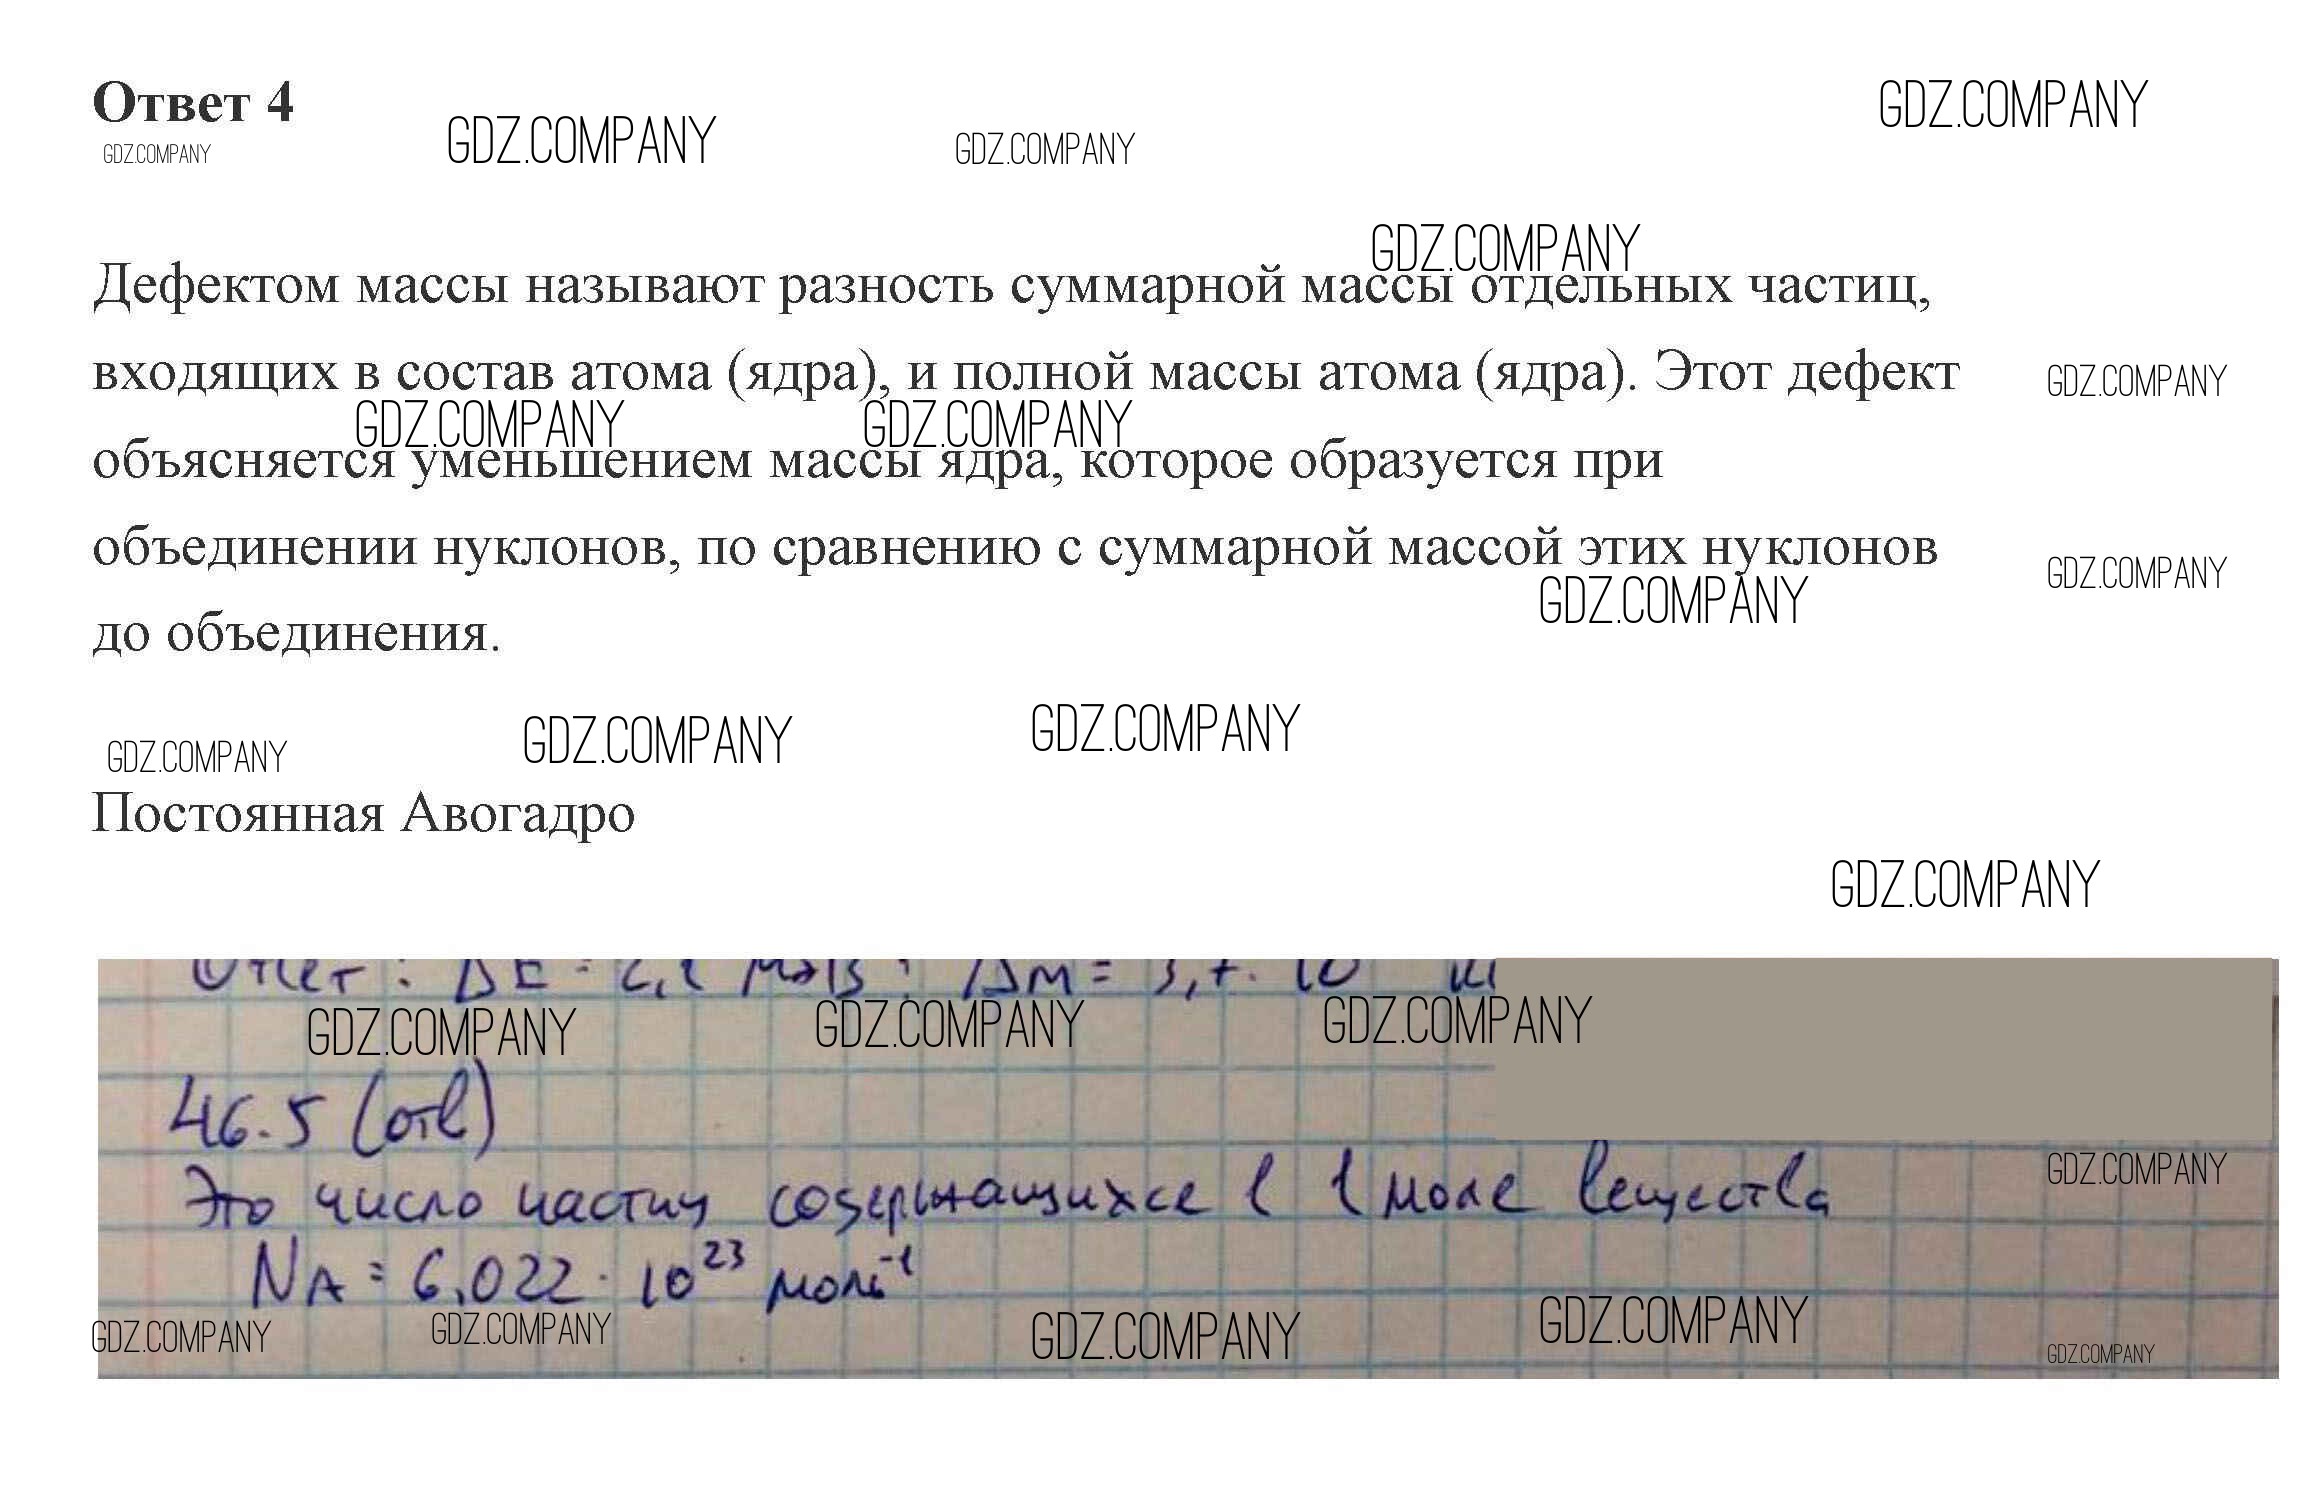 Ответ 4
GDZ.COMPANY
GDZ.COMPANY
GDZ.COMPANY
GDZ.COMPANY
GDZ.COMPANY
Дефектом массы называют разность суммарной массы отдельных частиц,
входящих в состав атома (ядра), и полной массы атома (ядра). Этот дефект
GDZ.COMPANY
GDZ.COMPANY
GDZ.COMPANY
объясняется уменьшением массы ядра, которое образуется при
объединении нуклонов, по сравнению с суммарной массой этих нуклонов
GDZ.COMPANY
GDZ.COMPANY
до объединения.
GDZ.COMPANY
GDZ.COMPANY
GDZ.COMPANY
Постоянная Авогадро
GDZ.COMPANY
Ответ: ΔE = 2,2 МэВ; ΔM = 3,7 · 10
GDZ.COMPANY
GDZ.COMPANY
GDZ.COMPANY
46.5 (отв)
Это число частиц содержащихся в 1 моле вещества
GDZ.COMPANY
NA = 6.022 · 10²³ моль⁻¹
GDZ.COMPANY
GDZ.COMPANY
GDZ.COMPANY
GDZ.COMPANY
GDZ.COMPANY